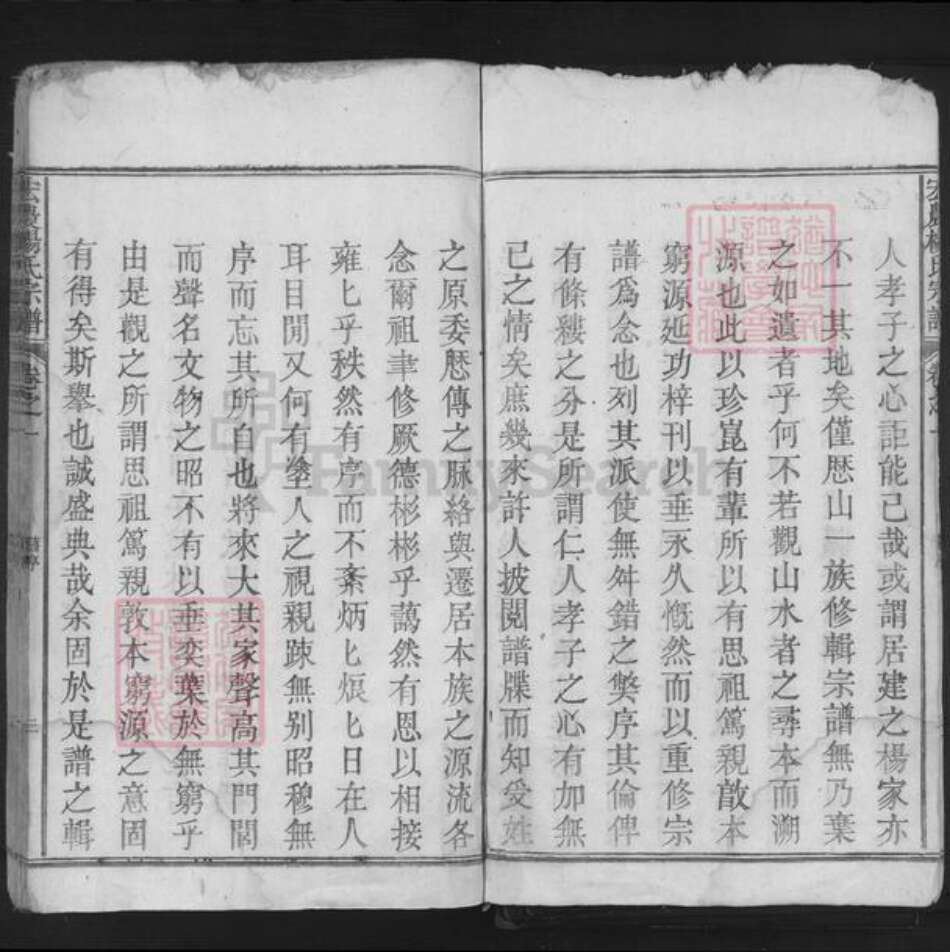 人孝子之心詎能已哉或謂居建之楊家亦
不一其地矣僅厯山一族修輯宗譜無乃棄
之如遺者乎何不若觀山水者之尋本而溯
源也此以珍崑有輩所以有思祖篤親敦本
窮源廵功梓刊以垂永久慨然而以重修宗
譜爲念也列其派使無舛錯之獘序其倫俾
有條縷之分是所謂仁人孝子之心有加無
已之情矣庶幾來許人披閱譜牒而知受姓
之原委厯傳之脉絡與遷居本族之源流各
念爾祖聿修厥德彬彬乎藹然有恩以相接
雍匕乎秩然有序而不紊炳匕烺匕日在人
耳目閒又何有塗人之視親踈無别昭穆無
序而忘其所自也將來大其家聲高其門閭
而聲名文物之昭不有以垂奕葉於無窮乎
由是觀之所謂思祖篤親敦本窮源之意固
有得矣斯舉也誠盛典哉余固於是譜之輯
楊氏宗譜
卷之一
二
FamilySearch